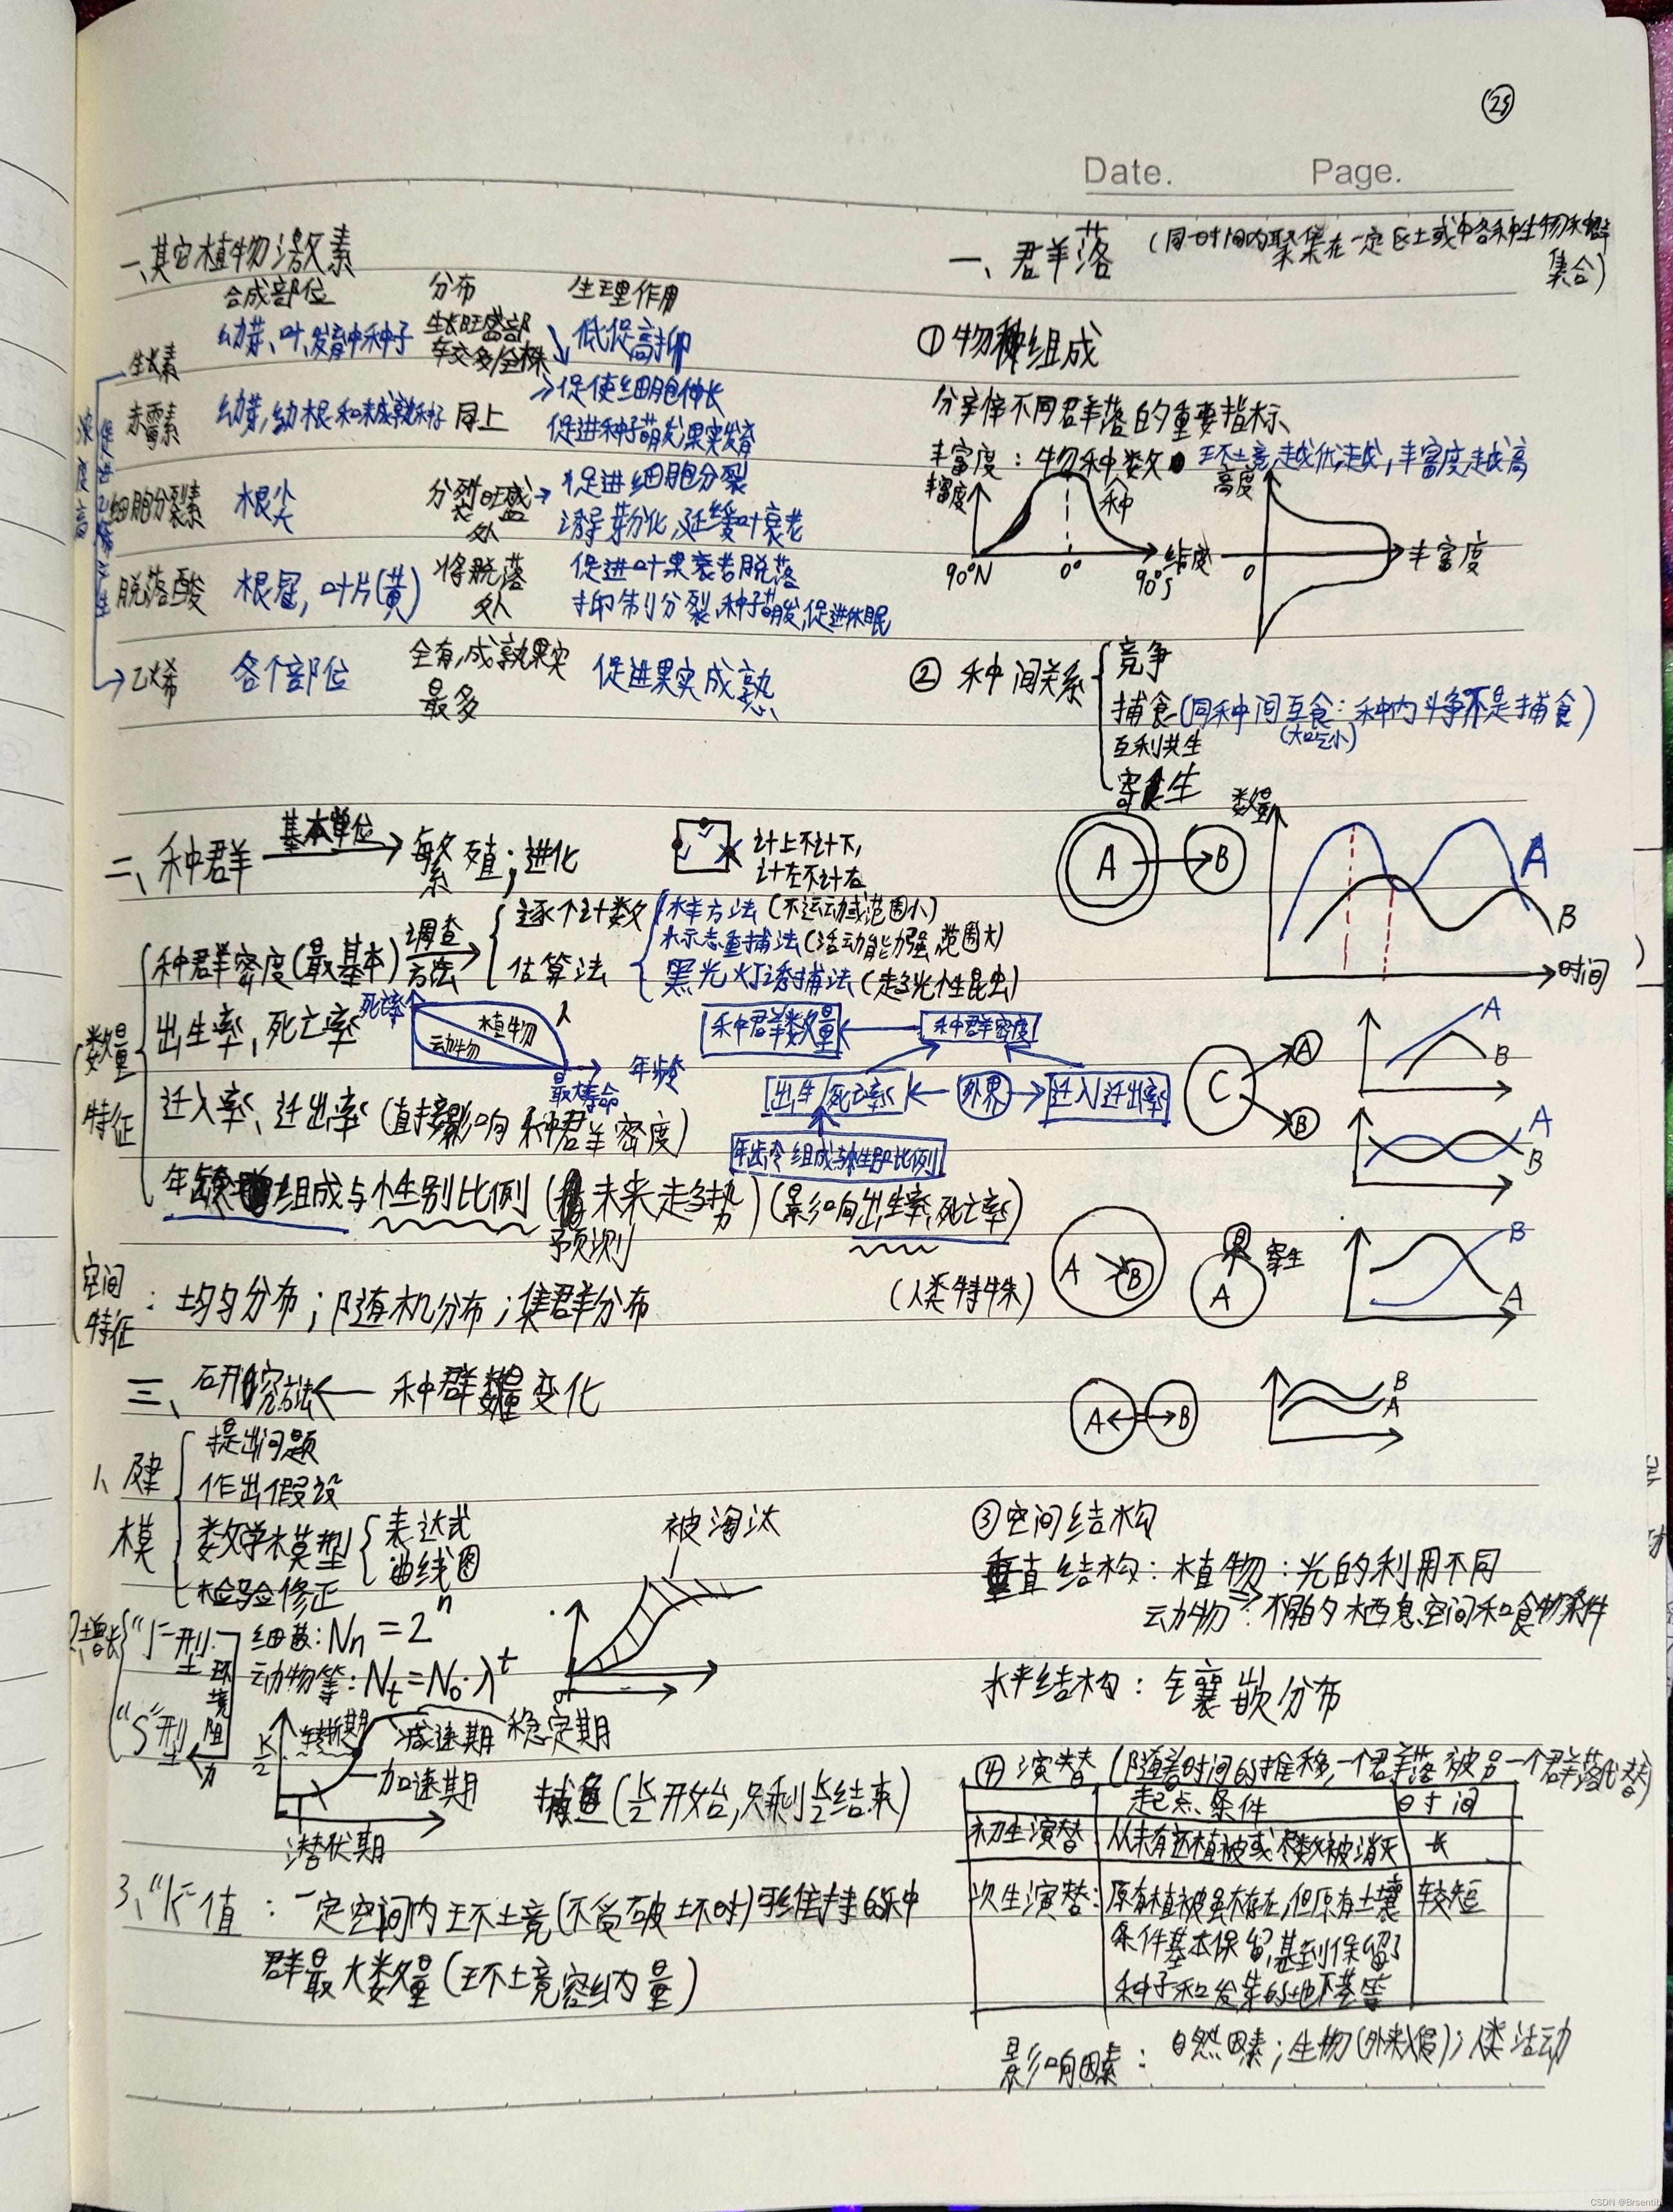 25
Date. Page.
一、其它植物激素
合成部位 分布 生理作用
生长素 幼芽、叶、发育中种子 生长旺盛部 较多/全株 低促高抑
→促使细胞伸长
赤霉素 幼芽,幼根和未成熟种子 同上 促进种子萌发果实发育
细胞分裂素 根尖 分裂旺盛处 → 促进细胞分裂
诱导芽分化,延缓叶衰老
脱落酸 根冠,叶片(黄) 将脱落处 促进叶果衰老脱落
抑制分裂,种子萌发,促进休眠
→乙烯 各个部位 全有,成熟果实最多 促进果实成熟
浓度高
促进乙烯产生
二、种群 基本单位→ 繁殖;进化
计上不计下,
计左不计右
数量特征
种群密度(最基本) 调查方法→ 逐个计数
估算法
样方法(不运动或范围小)
标志重捕法(活动能力强,范围大)
黑光灯诱捕法(趋光性昆虫)
出生率,死亡率
死亡率 植物 动物 人 年龄 最大寿命
种群数量 ← 种群密度
出生/死亡率 ← 外界 → 迁入/迁出率
年龄组成与性别比例
迁入率、迁出率(直接影响种群密度)
年龄组成与性别比例(预测未来走势)(影响出生率,死亡率)
空间特征:均匀分布;随机分布;集群分布
三、研究方法← 种群数量变化
1、建模
提出问题
作出假设
数学模型 表达式
曲线图
检验修正
被淘汰
2、增长 “J”型 细菌:Nn = 2ⁿ
动物等:Nt = N₀·λᵗ
环境阻力
“S”型
K/2 转折期 减速期 稳定期
加速期
潜伏期
捕鱼(K/2开始,只剩K/2结束)
3、“K”值:一定空间内环境(不受破坏时)可维持的种
群最大数量(环境容纳量)
一、群落 (同一时间内聚集在一定区域中各种生物种群
集合)
①物种组成
分辨不同群落的重要指标
丰富度:物种数 环境越优越,丰富度越高
丰富度 种 90°N 0° 90°S 纬度
高度 0 丰富度
②种间关系
竞争
捕食(同种间互食:种内斗争不是捕食)
(大吃小)
互利共生
寄生
A B 数量 A B 时间
C A B A B
A B
A B B A 寄生 B A
(人类特殊)
A B B A
③空间结构
垂直结构:植物:光的利用不同
动物:不同的栖息空间和食物条件
水平结构:镶嵌分布
④演替(随着时间的推移,一个群落被另一个群落代替)
起点、条件 时间
初生演替:从未有过植被或 被消灭 长
次生演替:原有植被虽不存在,但原有土壤 较短
条件基本保留,甚到保留了
种子和 的地下茎等
影响因素:自然因素;生物(外来入侵);人类活动
CSDN @Brsentibi